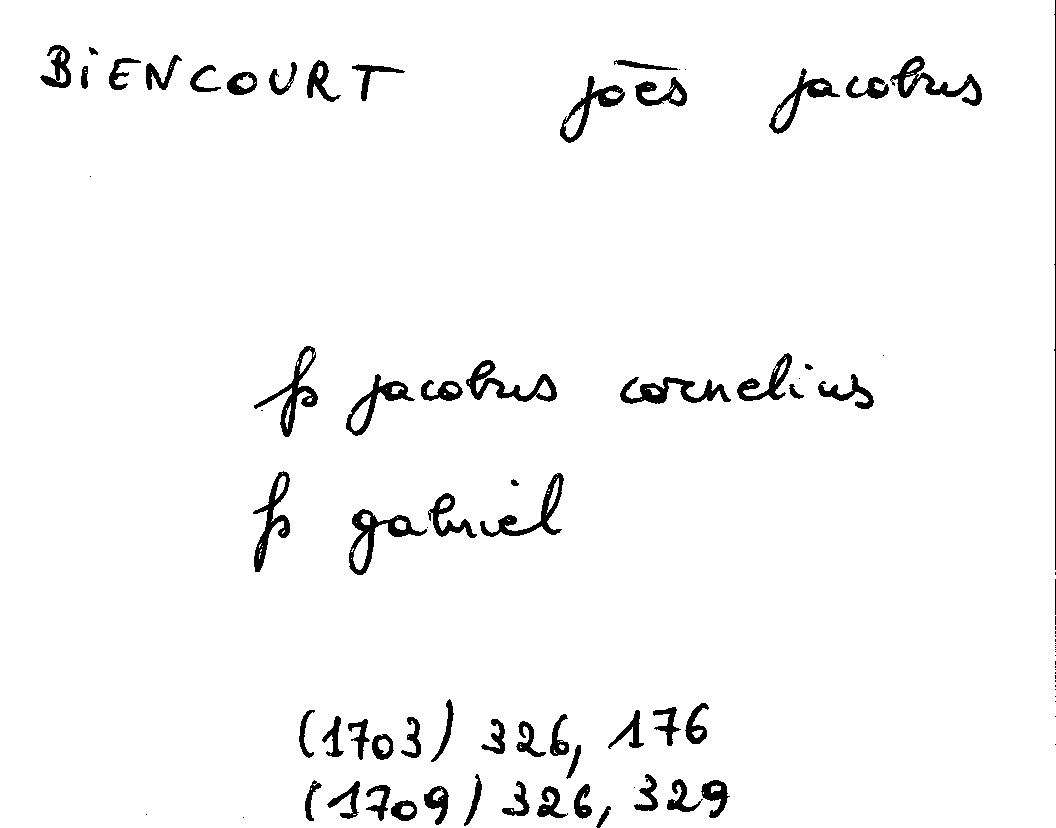 BiENCOURT joēs jacobus
fs jacobus cornelius
fs gabriel
(1703) 326, 176
(1709) 326, 329